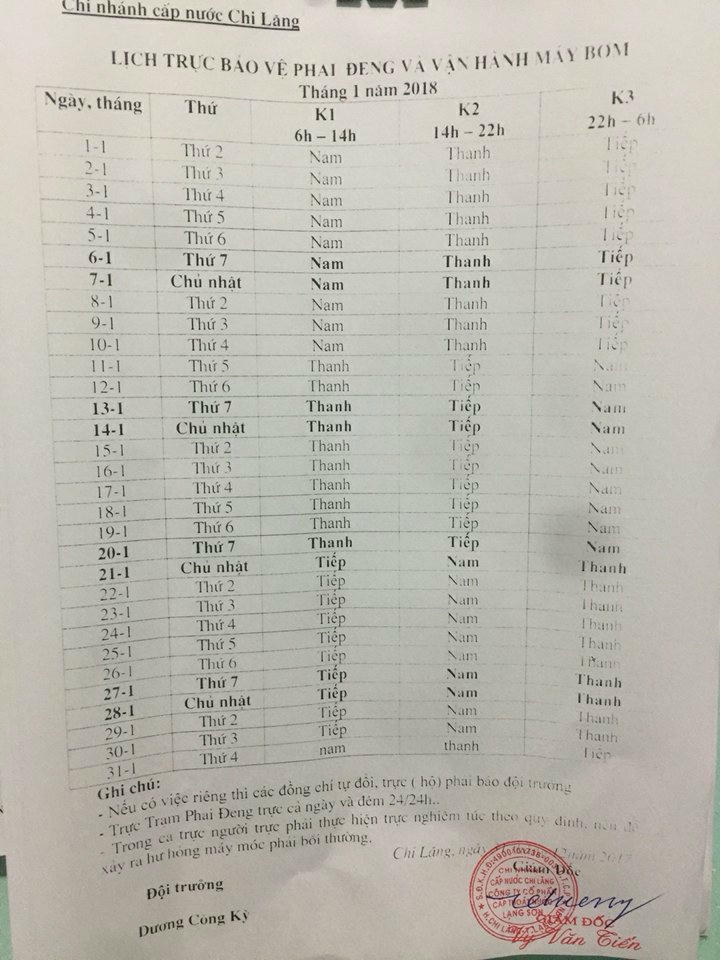 Chi nhánh cấp nước Chi Lăng
LỊCH TRỰC BẢO VỆ PHAI ĐENG VÀ VẬN HÀNH MÁY BƠM
Tháng 1 năm 2018
Ngày, tháng Thứ K1 K2 K3
6h – 14h 14h – 22h 22h – 6h
1-1 Thứ 2 Nam Thanh Tiếp
2-1 Thứ 3 Nam Thanh Tiếp
3-1 Thứ 4 Nam Thanh Tiếp
4-1 Thứ 5 Nam Thanh Tiếp
5-1 Thứ 6 Nam Thanh Tiếp
6-1 Thứ 7 Nam Thanh Tiếp
7-1 Chủ nhật Nam Thanh Tiếp
8-1 Thứ 2 Nam Thanh Tiếp
9-1 Thứ 3 Nam Thanh Tiếp
10-1 Thứ 4 Nam Thanh Tiếp
11-1 Thứ 5 Thanh Tiếp Nam
12-1 Thứ 6 Thanh Tiếp Nam
13-1 Thứ 7 Thanh Tiếp Nam
14-1 Chủ nhật Thanh Tiếp Nam
15-1 Thứ 2 Thanh Tiếp Nam
16-1 Thứ 3 Thanh Tiếp Nam
17-1 Thứ 4 Thanh Tiếp Nam
18-1 Thứ 5 Thanh Tiếp Nam
19-1 Thứ 6 Thanh Tiếp Nam
20-1 Thứ 7 Thanh Tiếp Nam
21-1 Chủ nhật Tiếp Nam Thanh
22-1 Thứ 2 Tiếp Nam Thanh
23-1 Thứ 3 Tiếp Nam Thanh
24-1 Thứ 4 Tiếp Nam Thanh
25-1 Thứ 5 Tiếp Nam Thanh
26-1 Thứ 6 Tiếp Nam Thanh
27-1 Thứ 7 Tiếp Nam Thanh
28-1 Chủ nhật Tiếp Nam Thanh
29-1 Thứ 2 Tiếp Nam Thanh
30-1 Thứ 3 Tiếp Nam Thanh
31-1 Thứ 4 nam thanh Tiếp
Ghi chú:
- Nếu có việc riêng thì các đồng chí tự đổi, trực ( hộ) phai báo đội trưởng
- Trực Trạm Phai Đeng trực cả ngày và đêm 24/24h..
- Trong ca trực người trực phải thực hiện trực nghiêm túc theo quy định, nếu để
xảy ra hư hỏng máy móc phải bồi thường.
Chi Lăng, ngày 12 năm 2017
Đội trưởng Giám Đốc
CHI NHÁNH
CẤP NƯỚC CHI LĂNG
CÔNG TY CỔ PHẦN
CẤP THOÁT NƯỚC
LẠNG SƠN
Dương Công Kỳ
GIÁM ĐỐC
Vy Văn Tiến